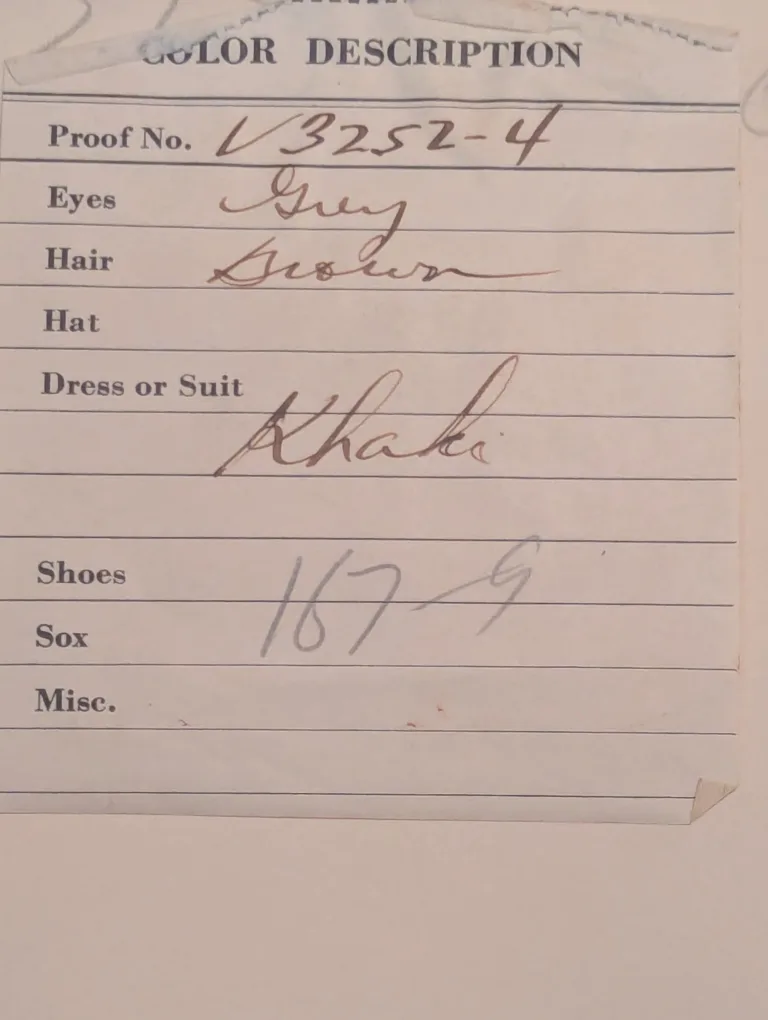 COLOR DESCRIPTION
Proof No. V3252-4
Eyes Grey
Hair Brown
Hat
Dress or Suit
Khaki
Shoes 167-9
Sox
Misc.